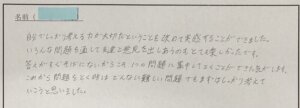 名前（
自分でしっかり考える力が大切だということを改めて実感することができました。
いろんな問題を通して友達と意見を出しあうのもとても楽しかったです。
答えがすぐそばにないからこそ、1つの問題に集中してとくことができた気がします。
これから問題をとく時はどんな難しい問題でもまずはしっかり考えて
いこうと思いました。